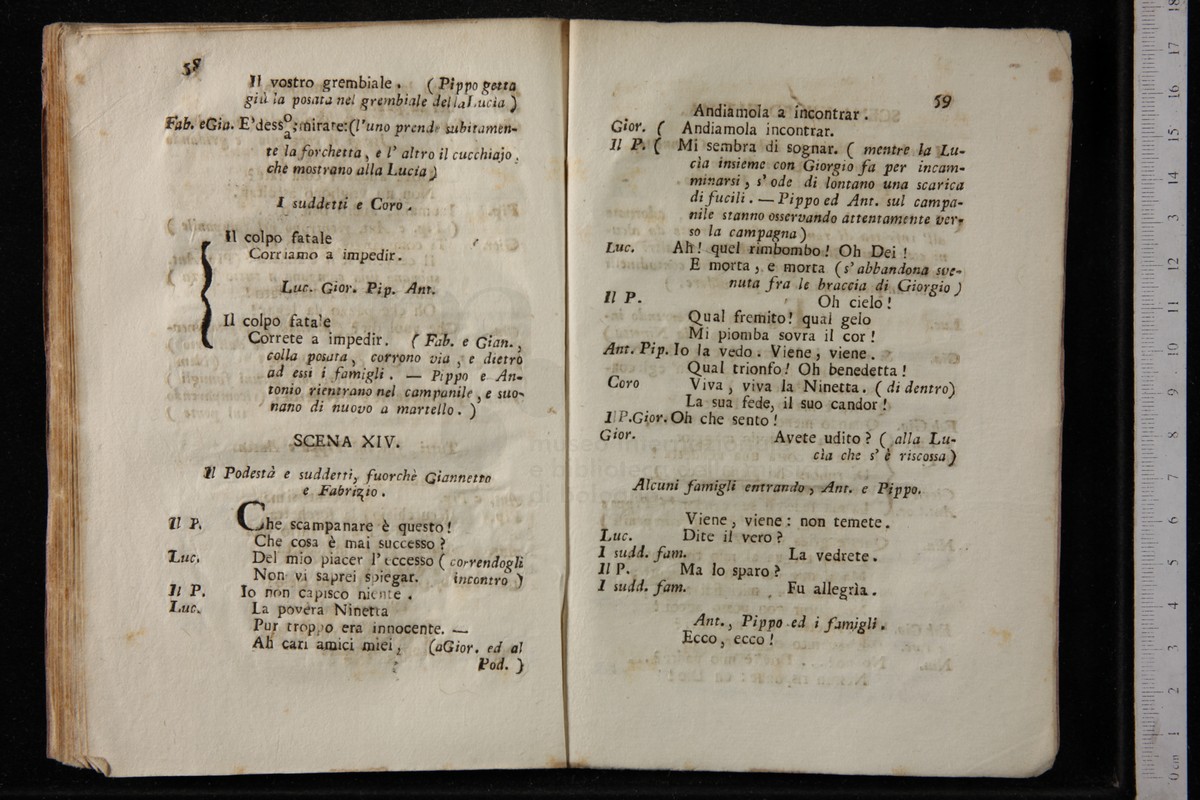 58
Il vostro grembiale. (Pippo getta
giù la posata nel grembiale della Lucia)
Fab. e Gia. E' desso/a; mirate: (l'uno prende subitamen-
te la forchetta, e l' altro il cucchiajo,
che mostrano alla Lucia)
I suddetti e Coro.
Il colpo fatale
Corriamo a impedir.
Luc. Gior. Pip. Ant.
Il colpo fatale
Correte a impedir. (Fab. e Gian.,
colla posata, corrono via, e dietro
ad essi i famigli. — Pippo e An-
tonio rientrano nel campanile, e suo-
nano di nuovo a martello.)
SCENA XIV.
Il Podestà e suddetti, fuorchè Giannetto
e Fabrizio.
Il P. Che scampanare è questo!
Che cosa è mai successo?
Luc. Del mio piacer l' eccesso (correndogli
Non vi saprei spiegar. incontro)
Il P. Io non capisco niente.
Luc. La povera Ninetta
Pur troppo era innocente. —
Ah cari amici miei, (a Gior. ed al
Pod.)
59
Andiamola a incontrar.
Gior. ( Andiamola incontrar.
Il P. ( Mi sembra di sognar. (mentre la Lu-
cìa insieme con Giorgio fa per incam-
minarsi, s' ode di lontano una scarica
di fucili. — Pippo ed Ant. sul campa-
nile stanno osservando attentamente ver-
so la campagna)
Luc. Ah! quel rimbombo! Oh Dei!
E morta, e morta (s' abbandona sve-
nuta fra le braccia di Giorgio)
Il P. Oh cielo!
Qual fremito! qual gelo
Mi piomba sovra il cor!
Ant. Pip. Io la vedo. Viene, viene.
Qual trionfo! Oh benedetta!
Coro Viva, viva la Ninetta. (di dentro)
La sua fede, il suo candor!
Il P. Gior. Oh che sento!
Gior. Avete udito? (alla Lu-
cìa che s' è riscossa)
Alcuni famigli entrando, Ant. e Pippo.
Viene, viene: non temete.
Luc. Dite il vero?
I sudd. fam. La vedrete.
Il P. Ma lo sparo?
I sudd. fam. Fu allegrìa.
Ant., Pippo ed i famigli.
Ecco, ecco!